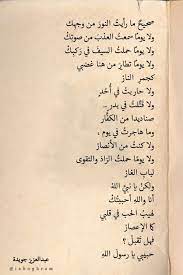 صحيحٌ ما رأيتُ النورَ من وجهِكَ
ولا يومًا سمعتُ العذبَ من صوتِكْ
ولا يومًا حملتُ السيفَ في ركبِكْ
ولا يومًا تطايرَ من هنا غضبي
كجمرِ النارْ
ولا حاربتُ في أُحُدٍ
ولا قَتَلتُ في بدرٍ
صناديدا من الكفّارْ
وما هاجرتُ في يومٍ ،
ولا كنتُ من الأنصارْ
ولا يومًا حملتُ الزادَ والتقوى
لبابِ الغارْ
ولكنْ يا نبيَّ اللهْ
أنا واللهِ أحببتُكْ
لهيبُ الحبِ في قلبي
كما الإعصارْ
فهل تَقبلْ ؟
حبيبي يا رسولَ اللهِ
عبدالعزيز جويدة